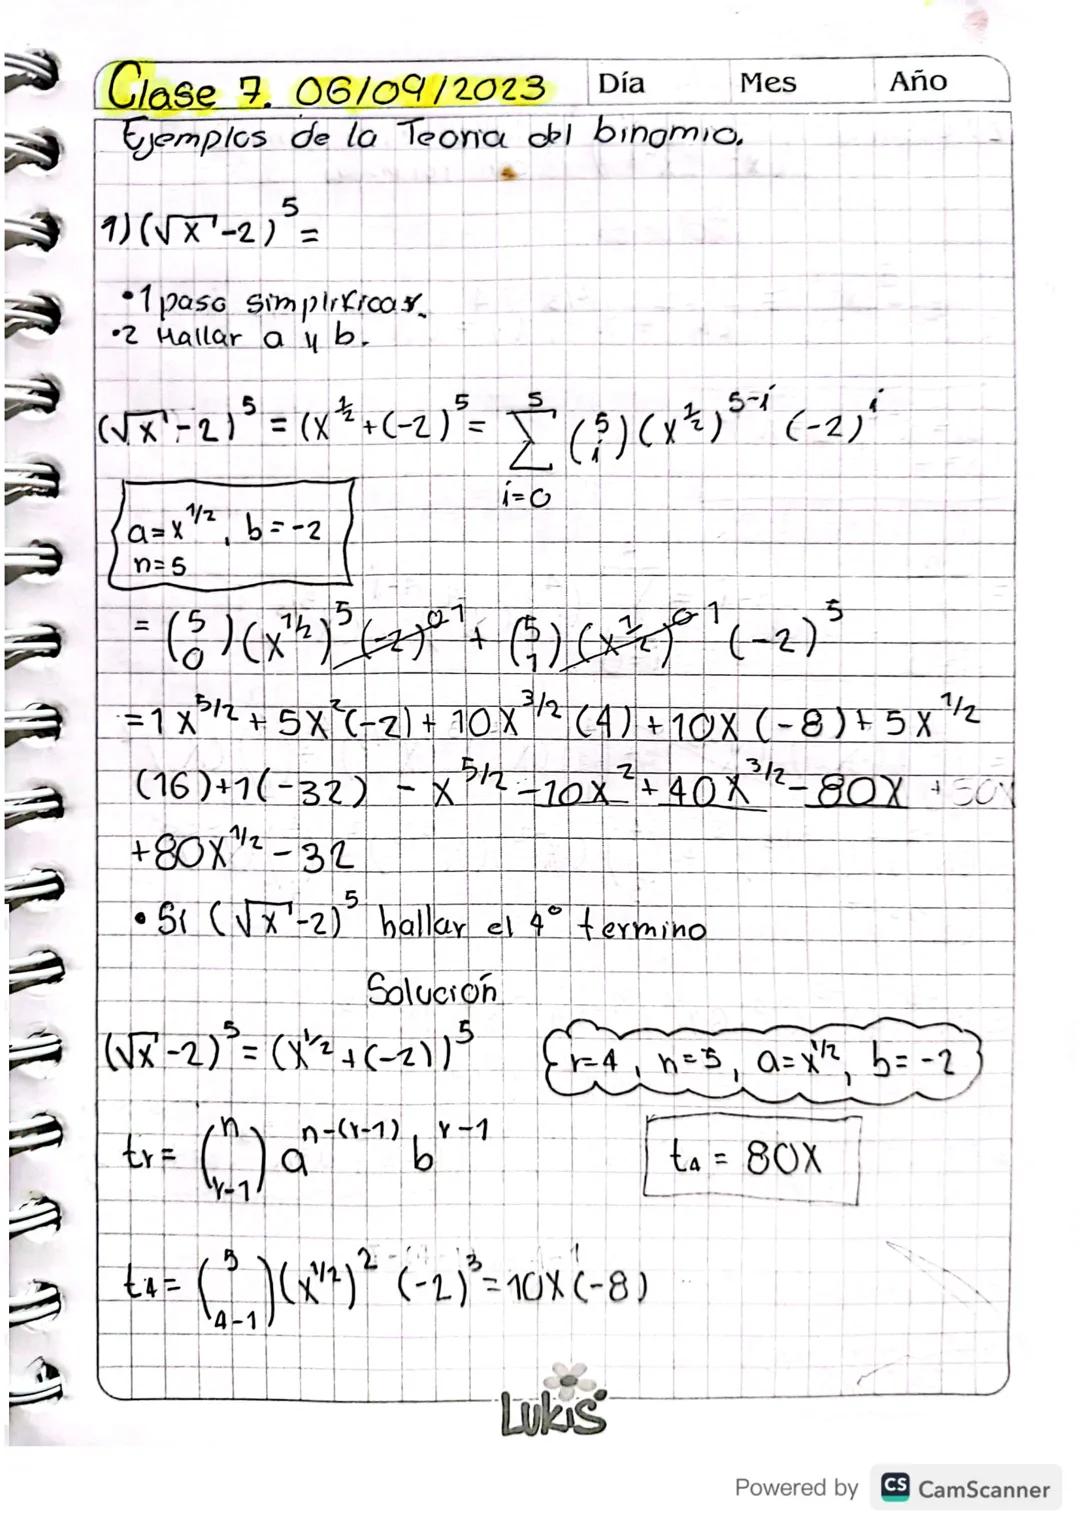 Clase 7. 06/09/2023 Día Mes Año
Ejemplos de la Teoria del binomio.
1) (√x -2)^5 =
•1 paso simplificar.
•2 Hallar a y b.
(√x -2)^5 = (x^½ + (-2)^5 = ∑_{i=0}^{5} (5 i) (x^½)^{5-i} (-2)^i
a = x^{1/2}, b = -2
n = 5
= (5 0) (x^{1/2})^5 (-2)^0 1 + (5 1) (x^{1/2})^0 1 (-2)^5
= 1x^{5/2} + 5x^2(-2) + 10x^{3/2} (4) + 10x (-8) + 5x^{1/2}
(16)+1(-32) - x^{5/2} - 10x^2 + 40x^{3/2} - 80x
+80x^{1/2} - 32
• Si (√x -2)^5 hallar el 4° termino
Solución
(√x -2)^5 = (x^{1/2} + (-2))^5 r=4, n=5, a=x^{1/2}, b=-2
tr = (n r-1) a^{n-(r-1)} b^{r-1} t4 = 80x
t4 = (5 4-1) (x^{1/2})^2 (-2)^3 = 10x (-8)
Lukis
Powered by CS CamScanner